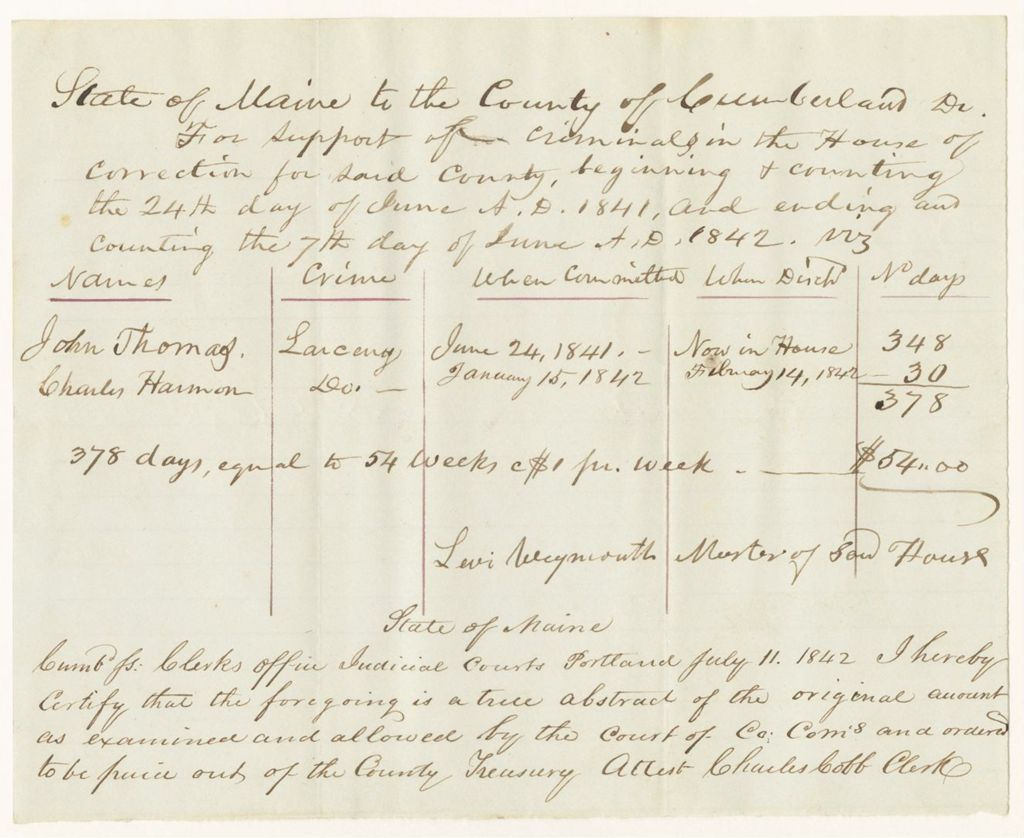 State of Maine to the County of Cumberland Dr.
For support of criminals in the House of
correction for said County, beginning & counting
the 24th day of June A.D. 1841, and ending and
counting the 7th day of June A.D. 1842. viz
Names Crime When Committed When Disch No days
John Thomas. Larceny June 24, 1841. - Now in House 348
Charles Harmon Do. - January 15, 1842 February 14, 1842 - 30
378
378 days, equal to 54 weeks c $1 pr. week - $54.00
Levi Weymouth Master of said House
State of Maine
Cumbd ss: Clerks office Judicial Courts Portland July 11. 1842 I hereby
Certify that the foregoing is a true abstract of the original amount
as examined and allowed by the Court of Co: Coms and ordered
to be paid out of the County Treasury Attest Charles Cobb Clerk